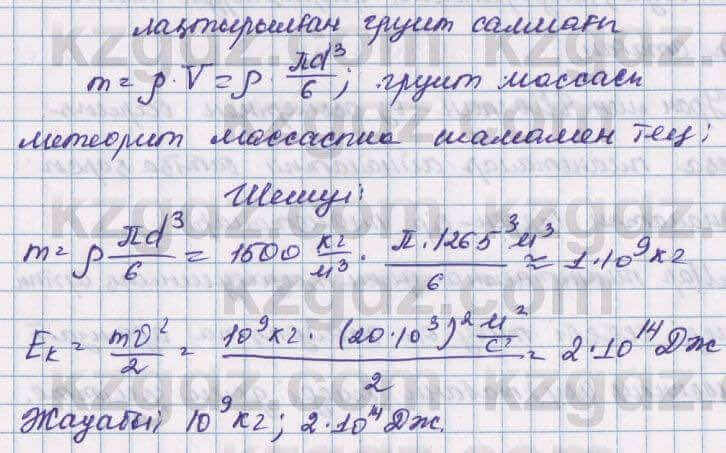 лақтырылған грунт салмағы
m = ρ·V = ρ · πd³/6 ; грунт массасы
метеорит массасына шамамен тең;
Шешуі:
m = ρ πd³/6 = 1500 кг/м³ · π·1265³м³/6 ≈ 1·10⁹кг
Eк = mυ²/2 = 10⁹кг·(20·10³)² м²/с²/2 = 2·10¹⁴Дж
Жауабы: 10⁹кг; 2·10¹⁴Дж.
kzgdz.com